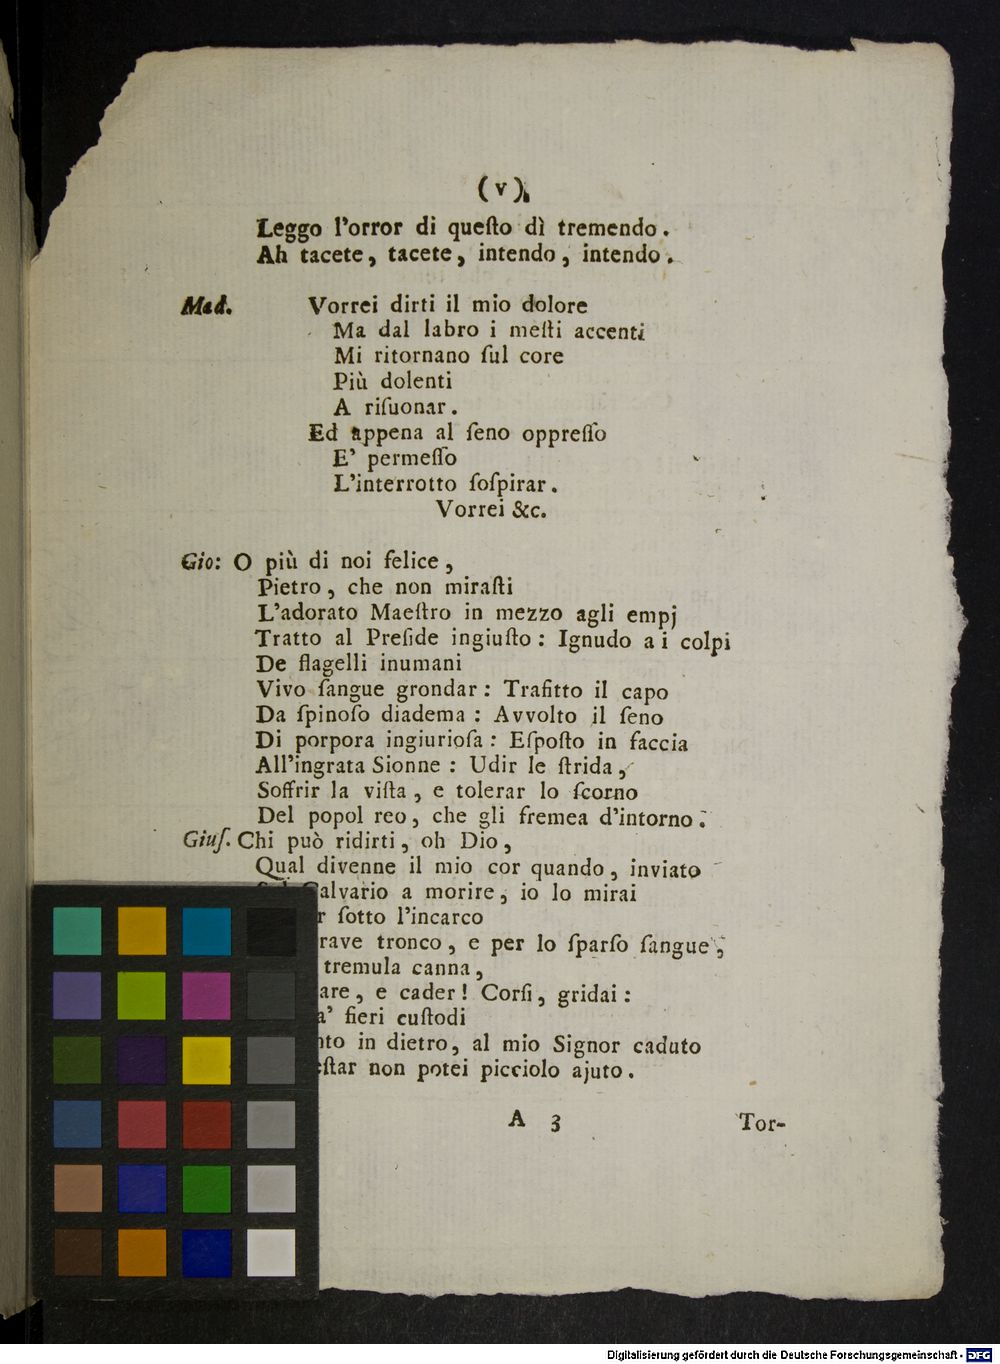 (v)
Leggo l'orror di queſto dì tremendo.
Ah tacete, tacete, intendo, intendo.
Mad. Vorrei dirti il mio dolore
Ma dal labro i meſti accenti
Mi ritornano ſul core
Più dolenti
A riſuonar.
Ed appena al ſeno oppreſſo
E' permeſſo
L'interrotto ſoſpirar.
Vorrei &c.
Gio: O più di noi felice,
Pietro, che non miraſti
L'adorato Maeſtro in mezzo agli empj
Tratto al Preſide ingiuſto: Ignudo a i colpi
De flagelli inumani
Vivo ſangue grondar: Trafitto il capo
Da ſpinoſo diadema: Avvolto il ſeno
Di porpora ingiurioſa: Eſpoſto in faccia
All'ingrata Sionne: Udir le ſtrida,
Soffrir la viſta, e tolerar lo ſcorno
Del popol reo, che gli fremea d'intorno.
Giuſ. Chi può ridirti, oh Dio,
Qual divenne il mio cor quando, inviato
Calvario a morire, io lo mirai
r ſotto l'incarco
rave tronco, e per lo ſparſo ſangue,
tremula canna,
are, e cader! Corſi, gridai:
a' fieri cuſtodi
nto in dietro, al mio Signor caduto
eſtar non potei picciolo ajuto.
A 3 Tor-
Digitalisierung gefördert durch die Deutsche Forschungsgemeinschaft - DFG